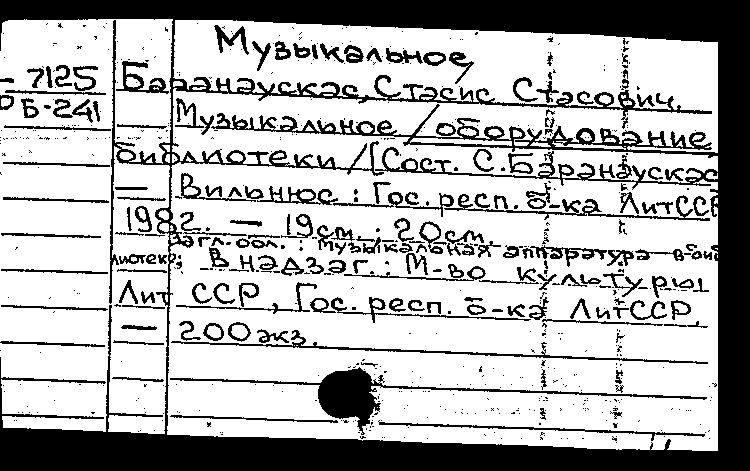 Музыкальное
– 7125 Баранаускас, Стасис Стасович.
Б-241 Музыкальное / оборудование
библиотеки / [Сост. С. Баранаускас
— Вильнюс : Гос. респ. б-ка ЛитССР
198 г. — 19 см. : 20 см.
Загл. обл. : Музыкальная аппаратура в биб
лиотеке; В надзаг. : М-во культуры
Лит ССР, Гос. респ. б-ка ЛитССР.
— 200 экз.